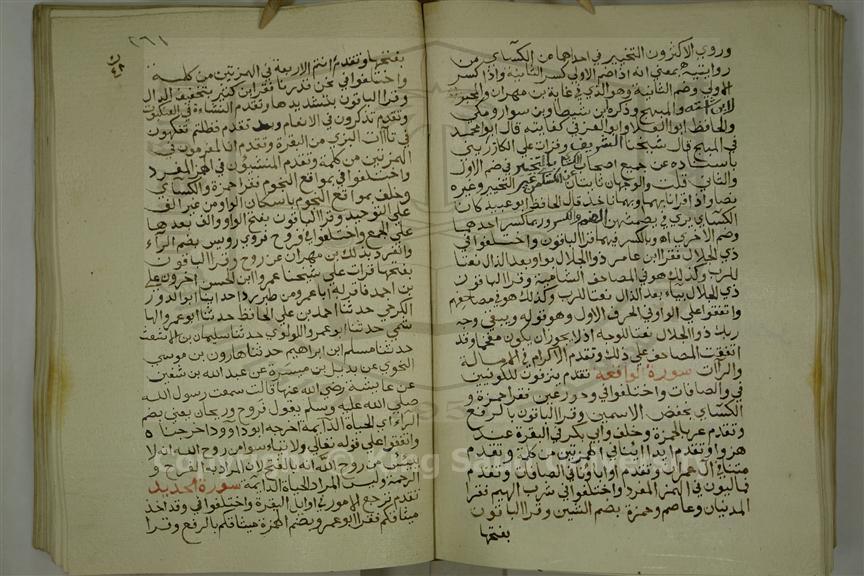 وروى الاكثرون التخيير في احداهما عن الكسائي من
روايتيه بمعنى انه اذا ضم الاولى كسر الثانية واذا كسر
الاولى وضم الثانية وهو الذي في غاية بن مهران والمحبر
لابن اشته والمبهج وذكره بن شيطا وبن سوار ومكي
والحافظ ابو العلا وابو العز في كفايته قال ابو محمد
في المبهج قال شيخنا الشريف وقرات على الكارزيني
باسناده عن جميع اصحاب الكسائي بالتخيير في ضم الاول
والثاني قلت والوجهان ثابتان عن الكسائي من التخيير وغيره
نصا واداء قرانا بهما وبهما ناخذ قال الحافظ ابو عبيد كان
الكسائي يرى في يطمثهن الضم والكسر وربما كسر احداهما
وضم الاخرى اه وبالكسر فيهما قرا الباقون واختلفوا في
ذي الجلال فقرا ابن عامر ذو الجلال بواو بعد الذال نعتا
للرب وكذلك هو في المصاحف الشامية وقرا الباقون
ذي الجلال بياء بعد الذال نعتا للرب وكذلك هو في مصاحفهم
واتفقوا على الواو في الحرف الاول وهو قوله ويبقى وجه
ربك ذو الجلال نعتا للوجه اذ لا يجوز ان يكون مقحما وقد
اتفقت المصاحف على ذلك وتقدم الاكرام في الامالة
والراآت سورة الواقعة تقدم ينزفون للكوفيين
في والصافات واختلفوا في وحور عين فقرا حمزة و
الكسائي بخفض الاسمين وقرا الباقون بالرفع
وتقدم عربا لحمزة وخلف وابي بكر في البقرة عند
هزوا وتقدم ايذا اينا في الهمزتين من كلمة وتقدم
متنا في ال عمران وتقدم اواباونا في الصافات وتقدم
فمالئون في الهمز المفرد واختلفوا في شرب الهيم فقرا
المدنيان وعاصم وحمزة بضم الشين وقرا الباقون
بفتحها
٢٦١
بفتحها وتقدم اانتم الاربعة في الهمزتين من كلمة
واختلفوا في نحن قدرنا فقرا ابن كثير بتخفيف الدال
وقرا الباقون بتشديدها وتقدم النشاءة في العنكبوت
وتقدم تذكرون في الانعام وبعد تقدم فظلتم تفكهون
في تاآت البزي من البقرة وتقدم انا لمغرمون في
الهمزتين من كلمة وتقدم المنشئون في الهمز المفرد
واختلفوا في بمواقع النجوم فقرا حمزة والكسائي
وخلف بمواقع النجوم باسكان الواو من غير الف
على التوحيد وقرا الباقون بفتح الواو والف بعدها
على الجمع واختلفوا في فروح فروى رويس بضم الراء
وانفرد بذلك بن مهران عن روح وقرا الباقون
بفتحها قرات على شيخنا عمرو ابن الحسن اخرون على
بن احمد فاقر به ابا عمرو بن طبرزد انا ابو الدور
الكرخي حدثنا احمد بن علي الحافظ حدثنا ابو عمر الها
شمي حدثنا ابو عمرو اللؤلؤي حدثنا سليمان بن الاشعث
حدثنا مسلم ابن ابراهيم حدثنا هارون بن موسى
النحوي عن بديل بن ميسرة عن عبد الله بن شقيق
عن عايشة رضي الله عنها قالت سمعت رسول الله
صلى الله عليه وسلم يقول فروح وريحان يعني بضم
الراء اي الحياة الدايمة اخرجه ابو داوود واخرجنا ه
واتفقوا على قوله تعالى ولا تياسوا من روح الله انه لا
ييئس من روح الله انه بالفتح لان المراد به الفرج و
الرحمة وليس المراد الحياة الدايمة سورة الحديد
تقدم ترجع الامور في اوايل البقرة واختلفوا في وقد اخذ
ميثاقكم فقرا ابو عمرو بضم الهمزة ميثاقكم بالرفع وقرا